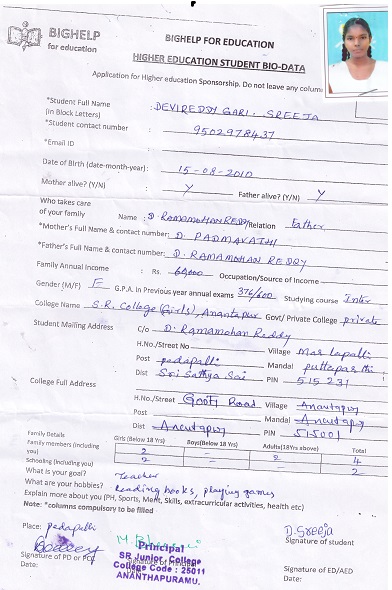 BIGHELP
for education
BIGHELP FOR EDUCATION
HIGHER EDUCATION STUDENT BIO-DATA
Application for Higher education Sponsorship. Do not leave any column
*Student Full Name : DEVIREDDY GARI. SREEJA
(in Block Letters)
*Student contact number : 9502978437
*Email ID :
Date of Birth (date-month-year): 15-08-2010
Mother alive? (Y/N) : Y Father alive? (Y/N) Y
Who takes care
of your family Name : D. RAMAMOHAN REDDY Relation Father
*Mother's Full Name & contact number: D. PADMAVATHI
*Father's Full Name & contact number: D. RAMAMOHAN REDDY
Family Annual Income : Rs. 60,000 Occupation/Source of Income
Gender (M/F) F G.P.A. in Previous year annual exams 376/600 Studying course Inter
College Name : S.R. College (Girls), Anantapur Govt/ Private College private
Student Mailing Address C/o D. Ramamohan Reddy
H.No./Street No Village Mar lapalli
Post pedapalli Mandal puttaparthi
Dist Sri Sathya Sai PIN 515 231
College Full Address
H.No./Street Gooti Road Village Anantapur
Post Mandal Anantapur
Dist Anantapur PIN 515001
Family Details Girls (Below 18 Yrs) Boys(Below 18 Yrs) Adults(18Yrs above) Total
Family members (including you) 2 2 4
Schooling (including you) 2 2
What is your goal? Teacher
What are your hobbies? Reading books, playing games
Explain more about you (PH, Sports, Merit, Skills, extracurricular activities, health etc)
Note: *columns compulsory to be filled
Place: pedapalli D. Sreeja
Signature of Principal Signature of student
Principal
SR Junior College
College Code : 25011
ANANTHAPURAMU.
Signature of PD or PC Signature of ED/AED
Date: Date: